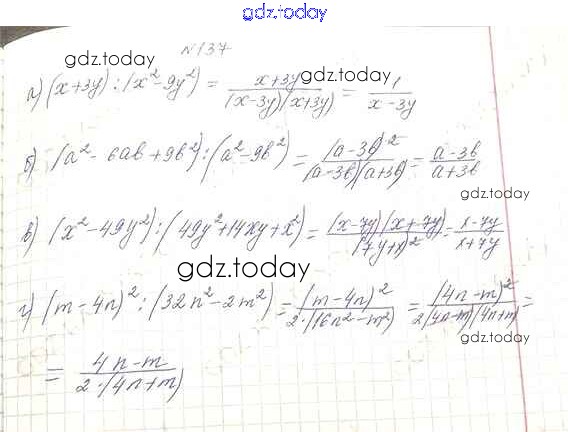 gdz.today
N 137
gdz.today
gdz.today
а) (x+3y) : (x²-9y²) = x+3y / (x-3y)(x+3y) = 1 / x-3y
б) (a²-6ab+9b²) : (a²-9b²) = (a-3b)² / (a-3b)(a+3b) = a-3b / a+3b
gdz.today
в) (x²-49y²) : (49y²+14xy+x²) = (x-7y)(x+7y) / (7y+x)² = x-7y / x+7y
gdz.today
г) (m-4n)² : (32n²-2m²) = (m-4n)² / 2·(16n²-m²) = (4n-m)² / 2(4n-m)(4n+m) =
gdz.today
= 4n-m / 2·(4n+m)